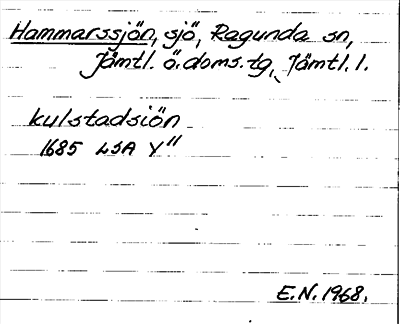 Hammarssjön, sjö, Ragunda sn,
Jämtl. ö. doms. tg, Jämtl. l.
kulstadsiön
1685 LSA Y"
E.N. 1968.